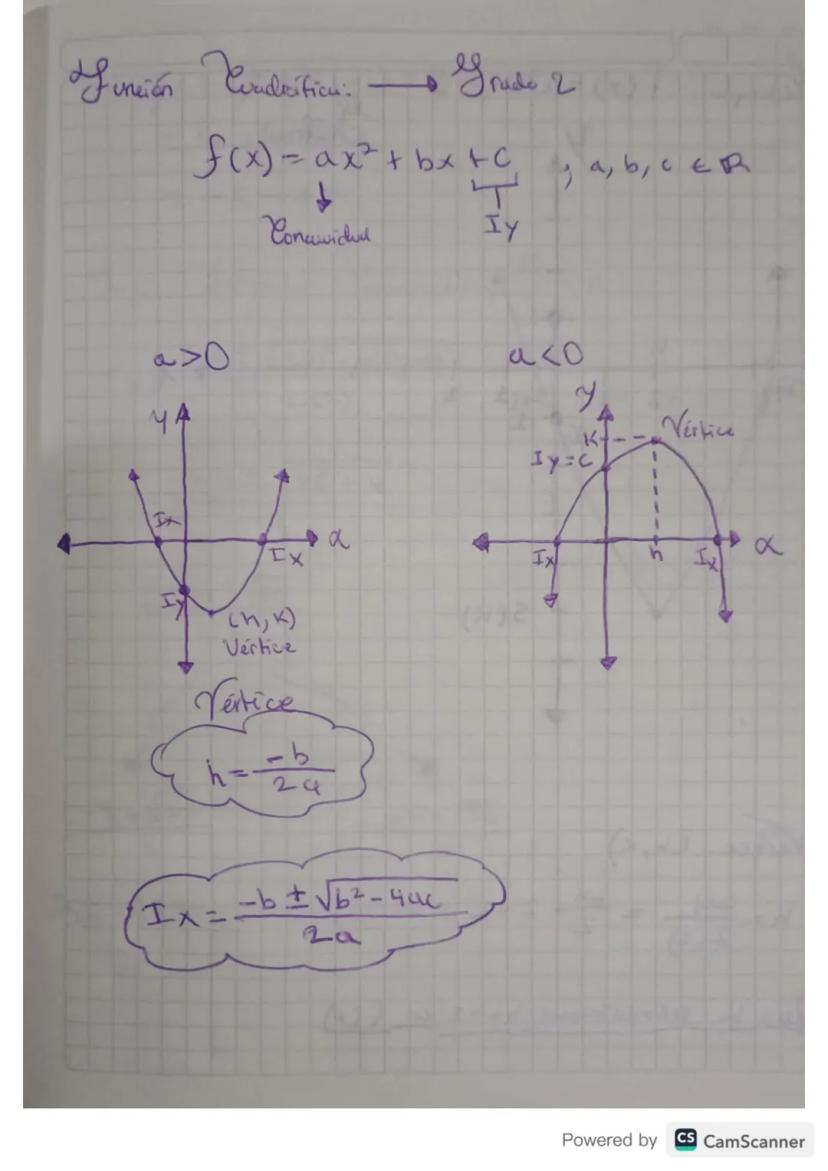 Función Cuadrática: → Grado 2
f(x) = ax² + bx + c ; a, b, c ∈ ℝ
Concavidad
Iy
a>0
a<0
y
Ix
Ix
x
Iy
(h, k)
Vértice
y
k
Vértice
Iy = c
Ix
h
Ix
x
Vértice
h = -b / 2a
Ix = -b ± √b² - 4ac / 2a
Powered by CS CamScanner